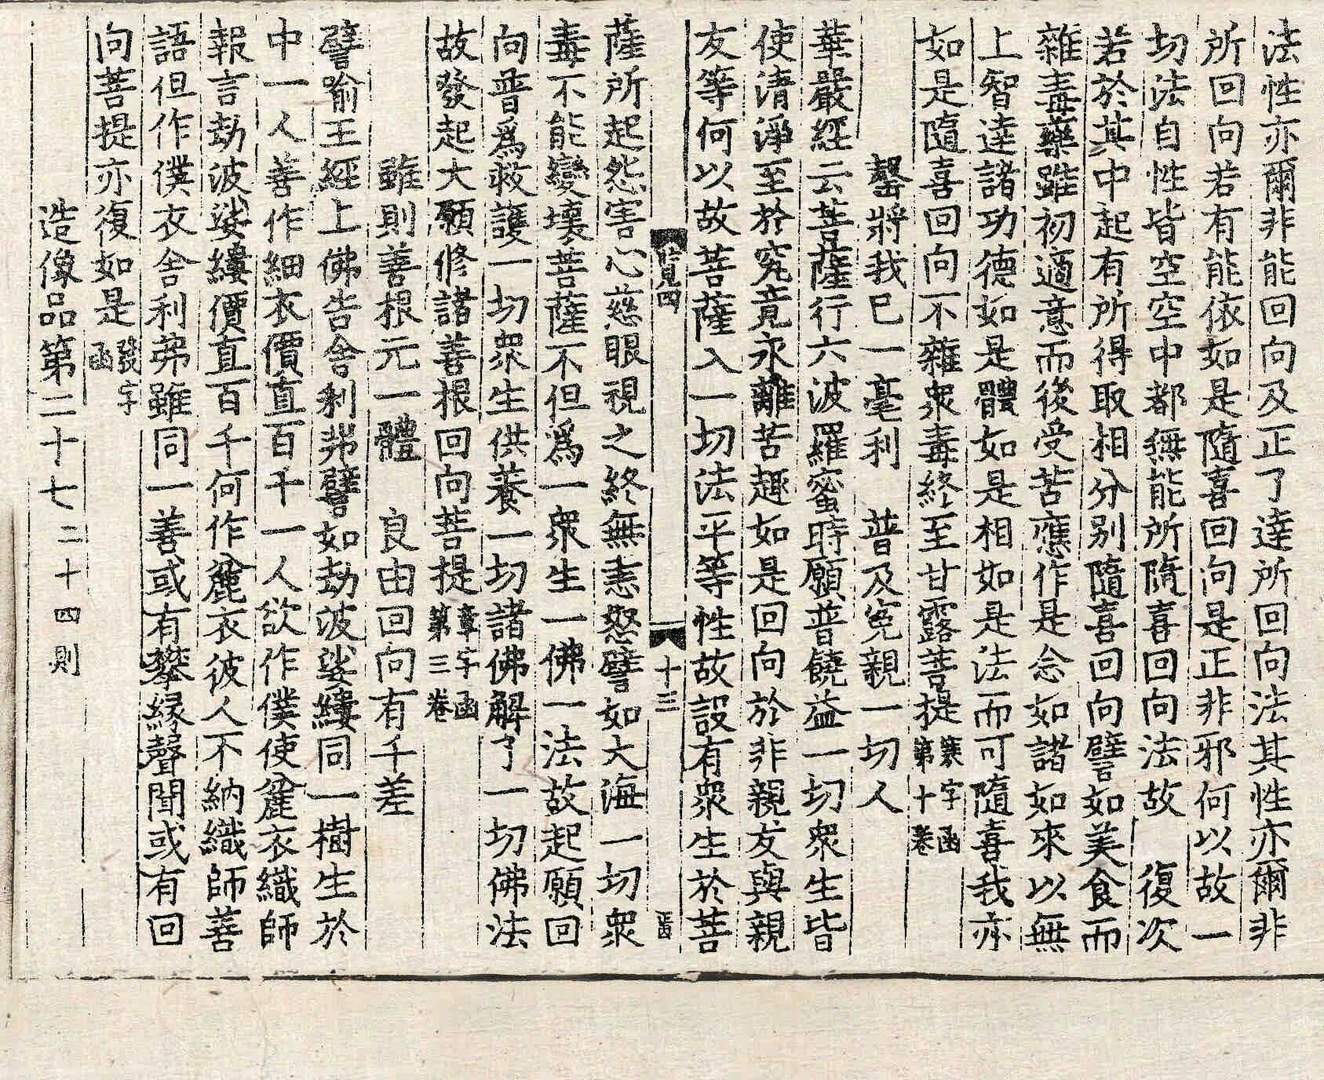 法性亦爾非能回向及正了達所回向法其性亦爾非
所回向若有能依如是隨喜回向是正非邪何以故一
切法自性皆空空中都無能所隨喜回向法故　復次
若於其中起有所得取相分別隨喜回向譬如美食而
雜毒藥雖初適意而後受苦應作是念如諸如來以無
上智達諸功德如是體如是相如是法而可隨喜我亦
如是隨喜回向不雜衆毒終至甘露菩提第十卷函
罄將我已一毫利　普及冤親一切人
華嚴經云菩薩行六波羅蜜時願普饒益一切衆生皆
使清淨至於究竟永離苦趣如是回向於非親友與親
友等何以故菩薩入一切法平等性故設有衆生於菩
四　十三
薩所起怨害心慈眼視之終無恚怒譬如大海一切衆
毒不能變壞菩薩不但爲一衆生一佛一法故起願回
向普爲救護一切衆生供養一切諸佛解了一切佛法
故發起大願修諸善根回向菩提章字函第三卷
雖則善根元一體　良由回向有千差
譬喻王經上佛告舍利弗譬如劫波娑縷同一樹生於
中一人善作細衣價直百千一人欲作僕使麄衣織師
報言劫波娑縷價直百千何作麄衣彼人不納織師善
語但作僕衣舍利弗雖同一善或有攀緣聲聞或有回
向菩提亦復如是發字函
造像品第二十七二十四則